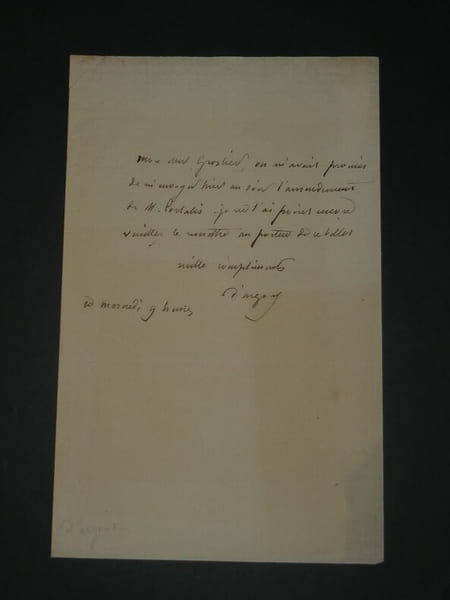 on m'avait promis
de m'envoyer hier au soir l'amendement
de M. Portalis. je ne l'ai point encore
veuillez le remettre au porteur de ce billet
mille compliments
d'argout
ce mercredi 9 heures
d'argout